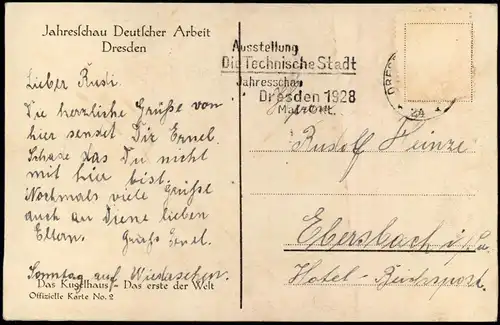 Jahresschau Deutscher Arbeit
Dresden
Lieber Rudi.
Die herzliche Grüße von
hier sendet Dir Ernel.
Schade das Du nicht
mit hier bist.
Nochmals viele Grüße
auch an Diene lieben
Eltern. Gruß Ernel.
Sonntag auf Wiedasehen.
Das Kugelhaus - Das erste der Welt
Offizielle Karte No. 2
Ausstellung
Die Technische Stadt
Jahresschau
Dresden 1928
Mai-Okt.
DRESD
24
Herrn
Rudolf Heinze
Ebersbach i/Sa.
Hotel-Reichspost.